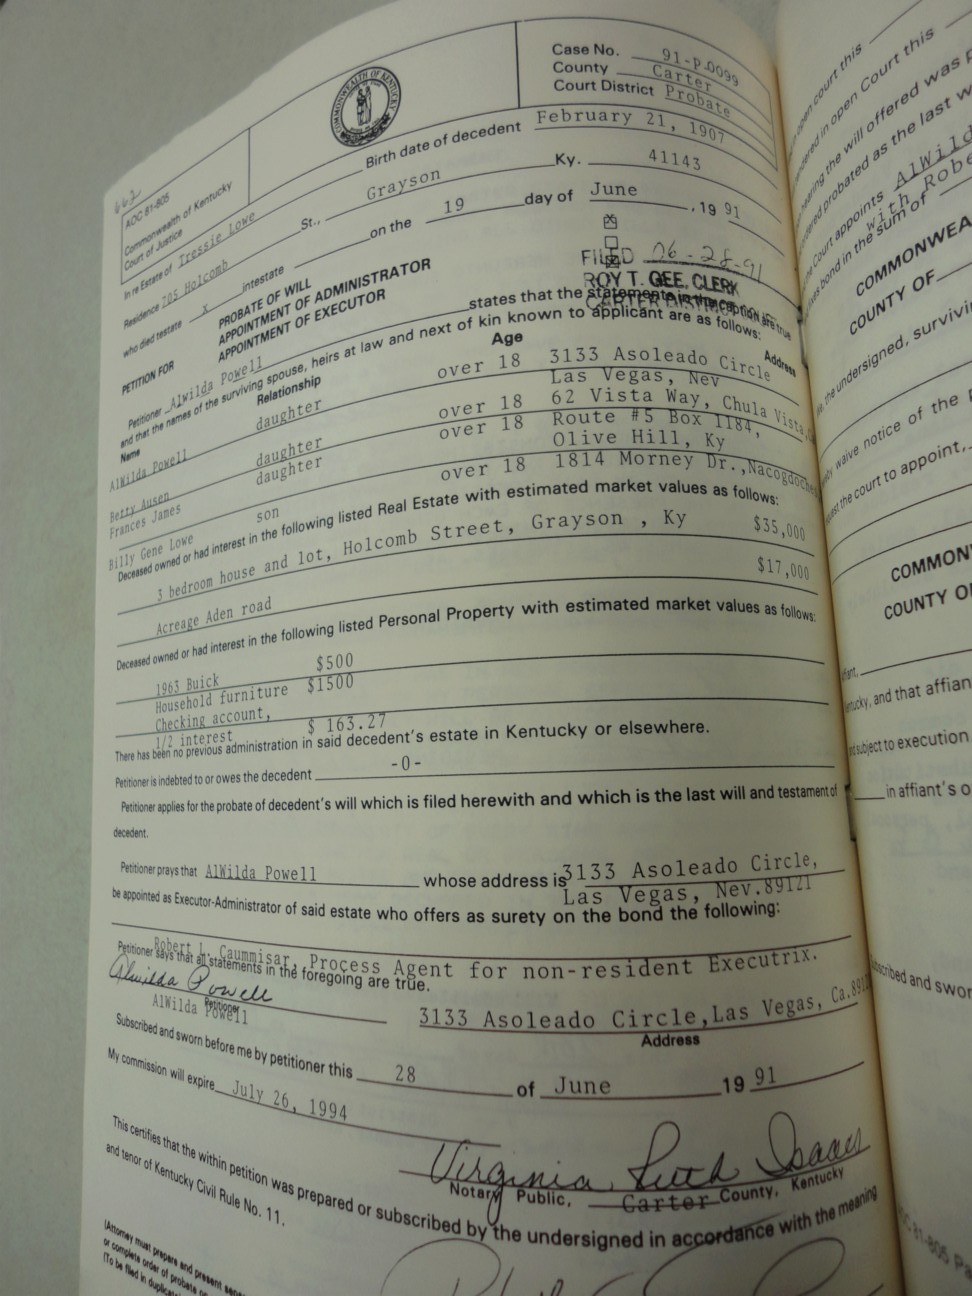 662
AOC 81-805
Commonwealth of Kentucky
Court of Justice
COMMONWEALTH OF KENTUCKY
Case No. 91-P-0099
County Carter
Court District Probate
In re Estate of Tressie Lowe Birth date of decedent February 21, 1907
Residence 205 Holcomb St., Grayson Ky. 41143
who died testate x intestate on the 19 day of June , 19 91
PETITION FOR
PROBATE OF WILL
APPOINTMENT OF ADMINISTRATOR
APPOINTMENT OF EXECUTOR
FILED 06-28-91
ROY T. GEE, CLERK
Petitioner Alwilda Powell states that the statements in the caption are true
and that the names of the surviving spouse, heirs at law and next of kin known to applicant are as follows:
Name Relationship Age Address
AlWilda Powell daughter over 18 3133 Asoleado Circle
Las Vegas, Nev
Betty Ausen daughter over 18 62 Vista Way, Chula Vista,
Frances James daughter over 18 Route #5 Box 1184,
Olive Hill, Ky
Billy Gene Lowe son over 18 1814 Morney Dr.,Nacogdoches
Deceased owned or had interest in the following listed Real Estate with estimated market values as follows:
3 bedroom house and lot, Holcomb Street, Grayson , Ky $35,000
Acreage Aden road $17,000
Deceased owned or had interest in the following listed Personal Property with estimated market values as follows:
1963 Buick $500
Household furniture $1500
Checking account,
1/2 interest $ 163.27
There has been no previous administration in said decedent's estate in Kentucky or elsewhere.
Petitioner is indebted to or owes the decedent -0-
Petitioner applies for the probate of decedent's will which is filed herewith and which is the last will and testament of
decedent.
Petitioner prays that AlWilda Powell whose address is 3133 Asoleado Circle,
Las Vegas, Nev.89121
be appointed as Executor-Administrator of said estate who offers as surety on the bond the following:
Robert L. Caummisar, Process Agent for non-resident Executrix.
Petitioner says that all statements in the foregoing are true.
Alwilda Powell
Petitioner
AlWilda Powell
3133 Asoleado Circle,Las Vegas, Ca.891
Address
Subscribed and sworn before me by petitioner this 28 of June 19 91
My commission will expire July 26, 1994
Virginia Ruth Isaacs
Notary Public, Carter County, Kentucky
This certifies that the within petition was prepared or subscribed by the undersigned in accordance with the meaning
and tenor of Kentucky Civil Rule No. 11.
(Attorney must prepare and present
or complete order of probate
(To be filed in duplicate)
open court this
in open Court this
hearing the will offered was
probated as the last w
Court appoints AlWild
with Robe
bond in the sum of
COMMONWEA
COUNTY OF
the undersigned, survivin
waive notice of the
the court to appoint,
COMMONW
COUNTY O
and that affian
subject to execution
in affiant's o
and swor